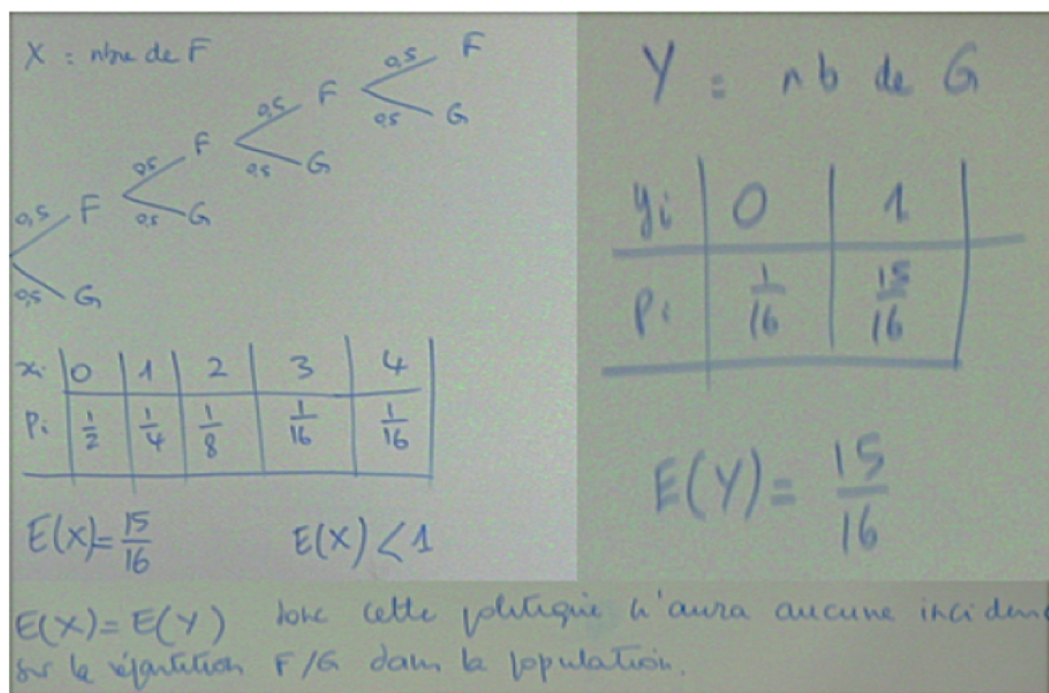 X : nbre de F
0,5 F
0,5 F
0,5 F
0,5 G
0,5 F
0,5 G
0,5 F
0,5 G
0,5 G
xi 0 1 2 3 4
Pi 1/2 1/4 1/8 1/16 1/16
E(X)=15/16 E(X)<1
Y : nb de G
yi 0 1
Pi 1/16 15/16
E(Y)=15/16
E(X)=E(Y) donc cette politique n'aura aucune inciden
sur la répartition F/G dans la population.